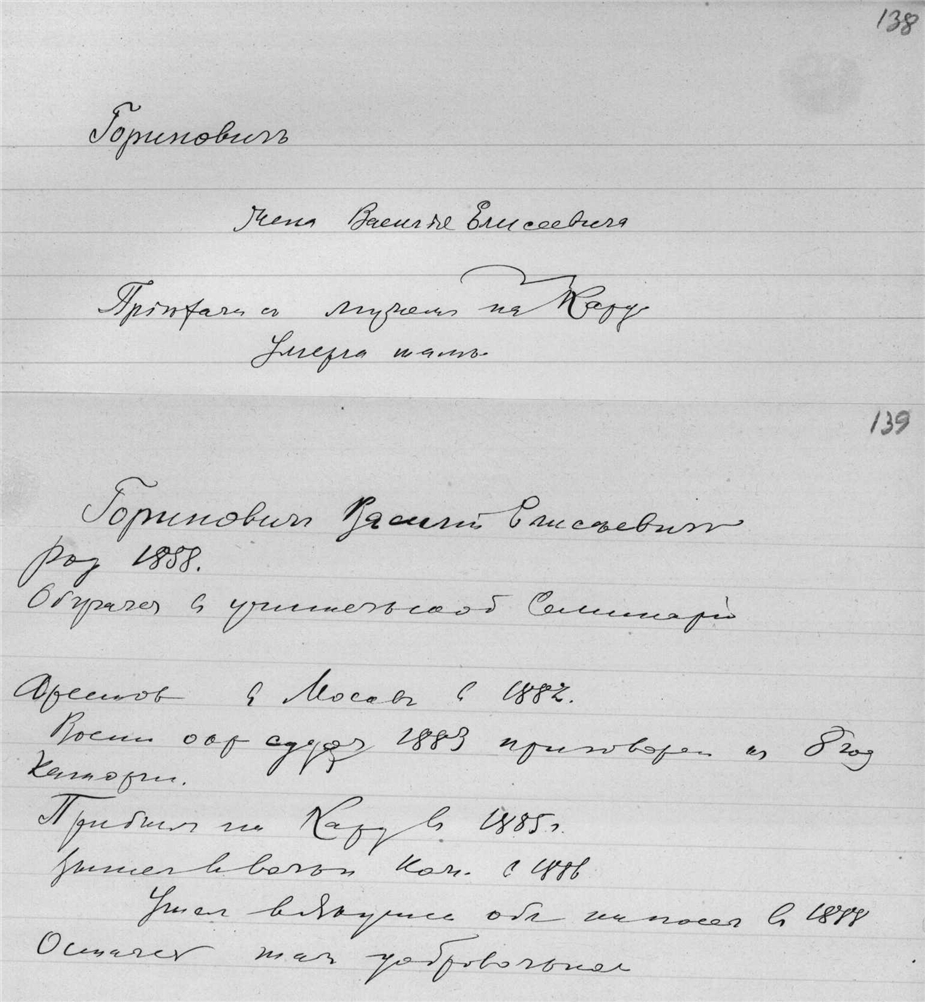 138
Гориновичъ
Жена Василія Елисеевича
Пріѣхала съ мужемъ на Кару
Умерла тамъ
139
Гориновичъ Василій Елисѣевичъ
род 1858.
Обучался в учительской Семинаріи
Арестов в Москвѣ в 1882.
Воен окр судом 1883 приговорен къ 8 год
Каторги.
Прибыл на Кару в 1885 г.
Вышел в вольн ком. в 1886
Ушел в Якутск обл на посел в 1888
Остался там добровольно